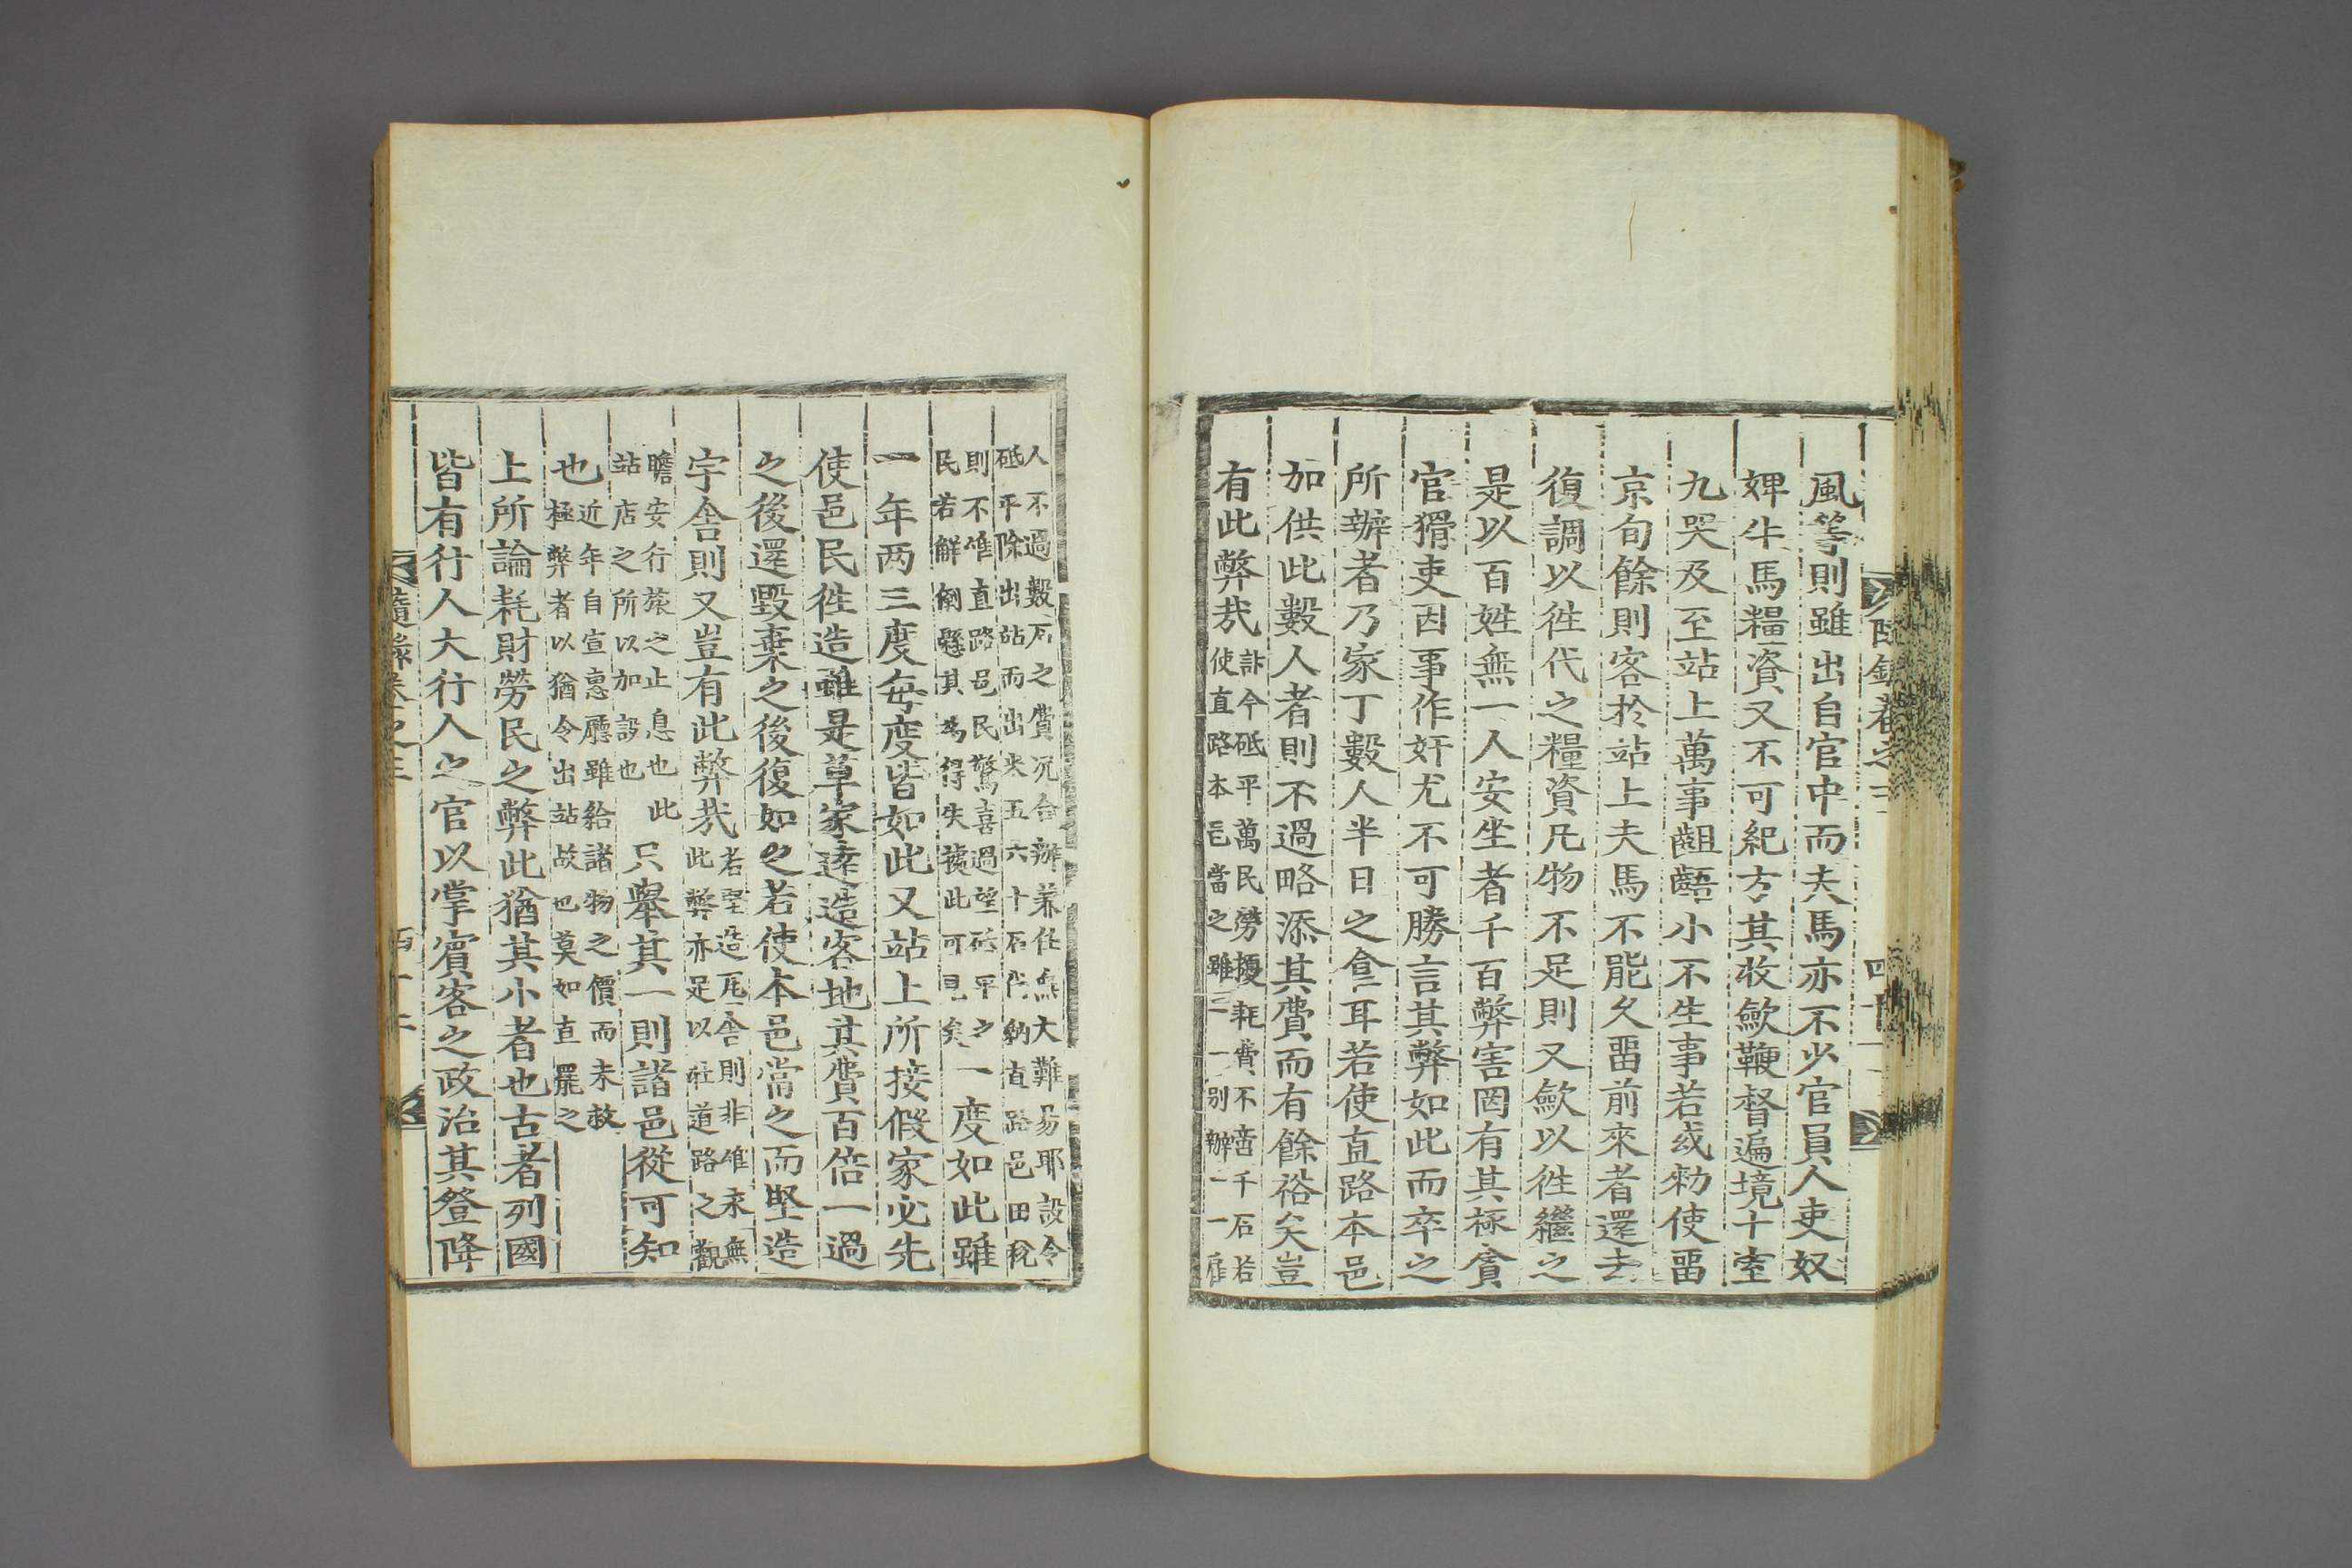 風等則雖出自官中而夫馬亦不少官員人吏奴
婢牛馬糧資又不可紀方其收斂鞭督遍境十室
九哭及至站上萬事齟齬小不生事若或勑使畱
京旬餘則客於站上夫馬不能久畱前來者還去
復調以徃代之糧資凡物不足則又歛以徃繼之
是以百姓無一人安坐者千百弊害罔有其極貪
官猾吏因事作奸尤不可勝言其弊如此而卒之
所辦者乃家丁數人半日之食耳若使直路本邑
加供此數人者則不過略添其費而有餘裕矣豈
有此弊㢤
計今砥平萬民勞擾耗費不啻千石若
使直路本邑當之雖一一別辦一一雇
人不過數石之費況合辦兼任無大難易耶設令
砥平除出站而出米五六十石代納直路邑田稅
則不惟直路邑民驚喜過望砥平之
民若解倒懸其爲得失據此可見矣
一度如此雖
一年两三度每度皆如此又站上所接假家必先
使邑民徃造雖是草家遠造客地其費百倍一過
之後還毀棄之後復如之若使本邑當之而堅造
宇舍則又豈有此弊㢤
若堅造瓦舍則非惟永無
此弊亦足以壯道路之觀
瞻安行旅之止息也此
站店之所以加設也
只舉其一則諸邑從可知
也
近年自宣惠廳雖給諸物之價而未救
極弊者以猶令出站故也莫如直罷之
上所論耗財勞民之弊此猶其小者也古者列國
皆有行人大行人之官以掌賓客之政治其登降